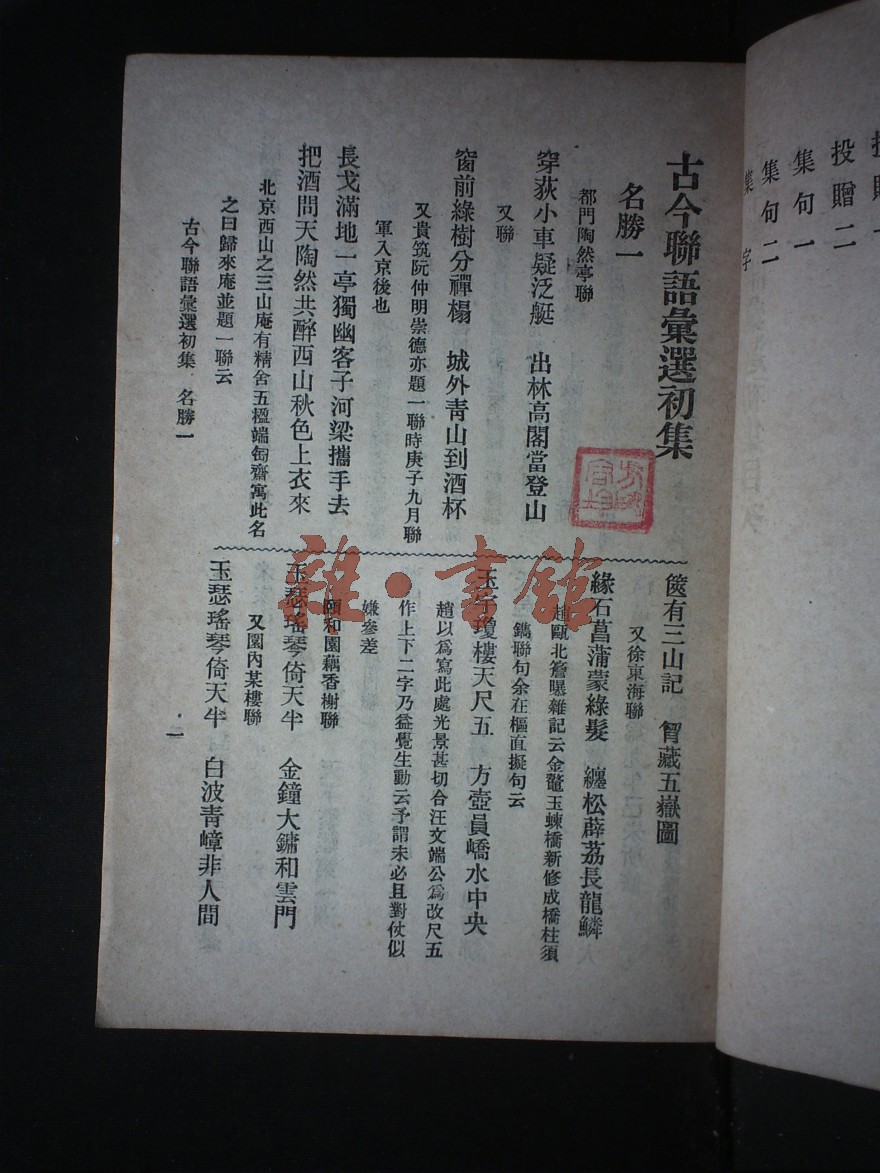 投贈一
投贈二
集句一
集句二
集字
古今聯語彙選初集
名勝一
都門陶然亭聯
穿荻小車疑泛艇　出林高閣當登山
又聯
窗前綠樹分禪榻　城外青山到酒杯
又貴筑阮仲明崇德亦題一聯時庚子九月聯
軍入京後也
長戈滿地一亭獨幽客子河梁攜手去
把酒問天陶然共醉西山秋色上衣來
北京西山之三山庵有精舍五楹端匋齋寓此名
之曰歸來庵並題一聯云
古今聯語彙選初集　名勝一
篋有三山記　胷藏五嶽圖
又徐東海聯
緣石菖蒲蒙綠髮　纏松薜荔長龍鱗
趙甌北簷曝雜記云金鼇玉蝀橋新修成橋柱須
鐫聯句余在樞直擬句云
玉宇瓊樓天尺五　方壺員嶠水中央
趙以爲寫此處光景甚切合汪文端公爲改尺五
作上下二字乃益覺生動云予謂未必且對仗似
嫌參差
頤和園藕香榭聯
玉瑟瑤琴倚天半　金鐘大鏞和雲門
又園內某樓聯
玉瑟瑤琴倚天半　白波青嶂非人間
一
雜·書館